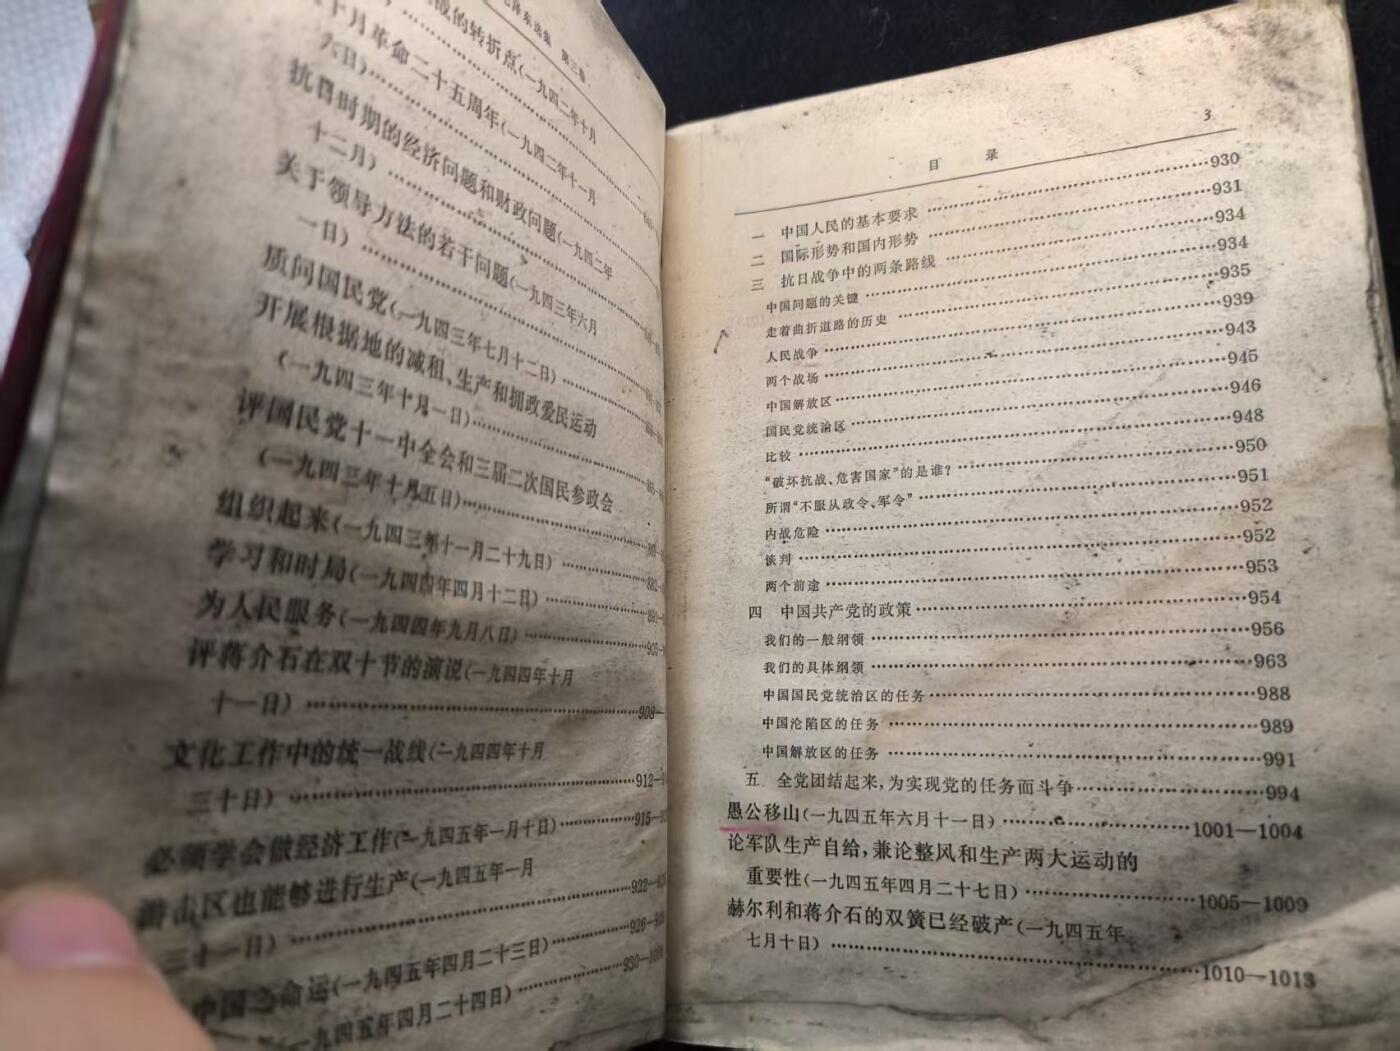 泽东选集 第三卷
的转折点(一九四二年十月
十月革命二十五周年(一九四二年十一月
六日)
抗日时期的经济问题和财政问题(一九四二年
十二月)
关于领导方法的若干问题(一九四三年六月
一日)
质问国民党(一九四三年七月十二日)
开展根据地的减租、生产和拥政爱民运动
(一九四三年十月一日)
评国民党十一中全会和三届二次国民参政会
(一九四三年十月五日)
组织起来(一九四三年十一月二十九日)
学习和时局(一九四四年四月十二日)
为人民服务(一九四四年九月八日)
评蒋介石在双十节的演说(一九四四年十月
十一日)……908—
文化工作中的统一战线(一九四四年十月
三十日)……912—
必须学会做经济工作(一九四五年一月十日)……915—
游击区也能够进行生产(一九四五年一月
三十一日)……922—
中国之命运(一九四五年四月二十三日)……926—
一九四五年四月二十四日)……930—
目 录 3
一 中国人民的基本要求……930
二 国际形势和国内形势……931
三 抗日战争中的两条路线……934
中国问题的关键……934
走着曲折道路的历史……935
人民战争……939
两个战场……943
中国解放区……945
国民党统治区……946
比较……948
“破坏抗战、危害国家”的是谁?……950
所谓“不服从政令、军令”……951
内战危险……952
谈判……952
两个前途……953
四 中国共产党的政策……954
我们的一般纲领……956
我们的具体纲领……963
中国国民党统治区的任务……988
中国沦陷区的任务……989
中国解放区的任务……991
五 全党团结起来,为实现党的任务而斗争……994
愚公移山(一九四五年六月十一日)……1001—1004
论军队生产自给,兼论整风和生产两大运动的
重要性(一九四五年四月二十七日)……1005—1009
赫尔利和蒋介石的双簧已经破产(一九四五年
七月十日)……1010—1013